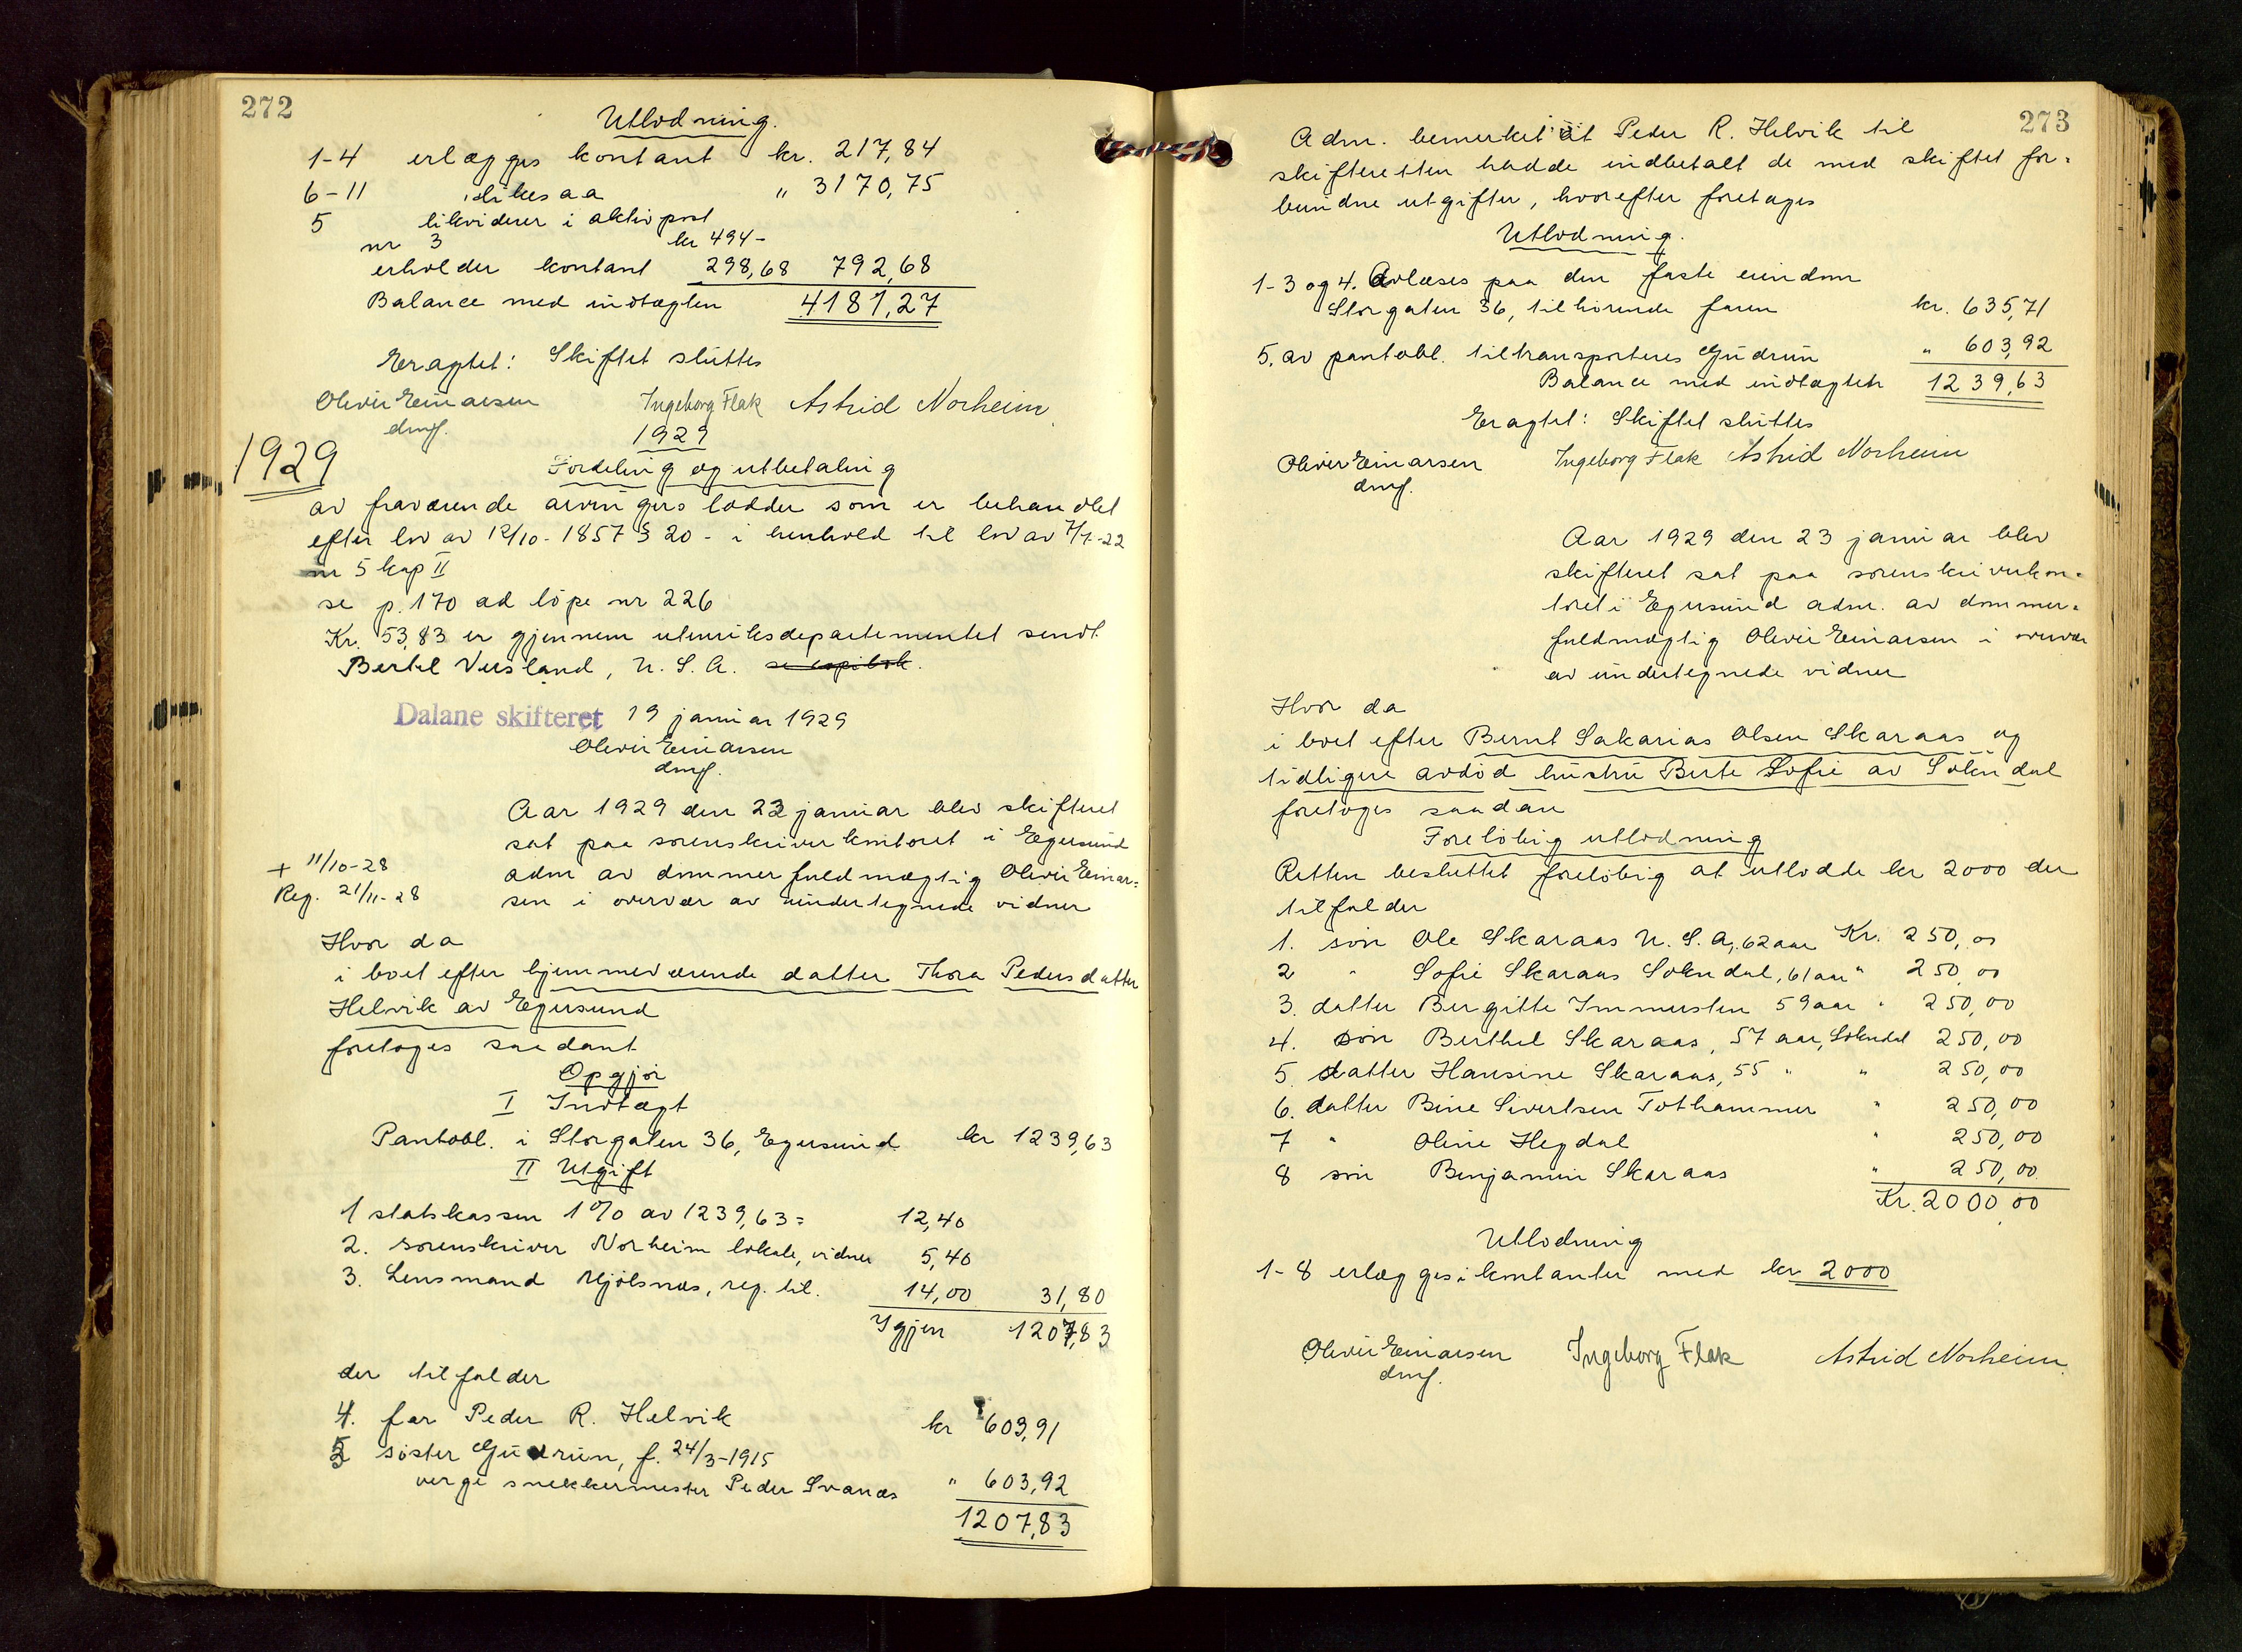 272
Utlodning.
1-4 erlægges kontant kr. 217,84
6-11 " 3170,75
5 likviderer i aktivpost
nr 3 kr 494-
erholder kontant 298,68 792,68
Balance med indtægten 4181,27
Eragtet: Skiftet sluttes
Olivir Einarsen Ingeborg Flak Astrid Norheim
dmf.
1929
1929
Fordeling og utbetaling
av fraværende arvingers lodder som er behandlet
efter lov av 12/10-1857 § 20 - i henhold til lov av 7/7-22
nr 5 kap II
se p. 170 ad löpe nr 226
Kr. 53,83 er gjennem utenriksdepartementet sendt
Bertel Versland, U.S.A. se kopibok.
Dalane skifteret 19 januar 1929
Olivir Einarsen
dmf.
Aar 1929 den 23 januar blev skifteret
sat paa sorenskriverkontoret i Egersund
adm av dommerfuldmægtig Olivir Einar=
sen i overvær av undertegnede vidner
+ 11/10-28
Reg. 21/11-28
Hvor da
i boet efter hjemmeværende datter Thora Pedersdatter
Helvik av Egersund
foretoges saadant
Opgjör
I Indtægt
Pantobl. i Storgaten 36, Egersund kr 1239,63
II Utgift
1 statskassen 1% av 1239,63 = 12,40
2. sorenskriver Norheim lokale, vidner 5,40
3. Lensmand Mjölsnes, reg. til. 14,00 31,80
Igjen 1207,83
der tilfalder
4. far Peder R. Helvik kr 603,91
5 söster Gudrun, f. 24/3-1915
verge snekkermester Peder Svanæs " 603,92
1207,83
273
Adm. bemerket at Peder R. Helvik til
skifteretten hadde indbetalt de med skiftet for=
bundne utgifter, hvorefter foretoges
Utlodning.
1-3 og 4. Avlæses paa den faste eiendom
Storgaten 36, tilhörende faren kr. 635,71
5. av pantobl. tiltransporteres Gudrun " 603,92
Balance med indtægten 1239,63
Eragtet: Skiftet sluttes
Olivir Einarsen Ingeborg Flak Astrid Norheim
dmf.
Aar 1929 den 23 januar blev
skifteret sat paa sorenskriverkon=
toret i Egersund adm. av dommer=
fuldmægtig Olivir Einarsen i overvær
av undertegnede vidner
Hvor da
i boet efter Bernt Sakarias Olsen Skaraas og
tidligere avdöd hustru Berte Sofie av Sokndal
foretoges saadan
Forelöbig utlodning
Retten besluttet forelöbig at utlodde kr 2000 der
tilfalder
1. sön Ole Skaraas U.S.A., 62 aar Kr. 250,00
2 " Sofie Skaraas Sokndal, 61 aar " 250,00
3. datter Bergitte Immersten 59 aar " 250,00
4. sön Berthel Skaraas, 57 aar, Sokndal 250,00
5. datter Hansine Skaraas, 55 " " 250,00
6. datter Bine Sivertsen Tothammer " 250,00
7 " Oline Hegdal " 250,00
8 sön Benjamin Skaraas " 250,00
Kr. 2000,00
Utlodning
1-8 erlægges i kontanter med kr 2000
Olivir Einarsen Ingeborg Flak Astrid Norheim
dmf.